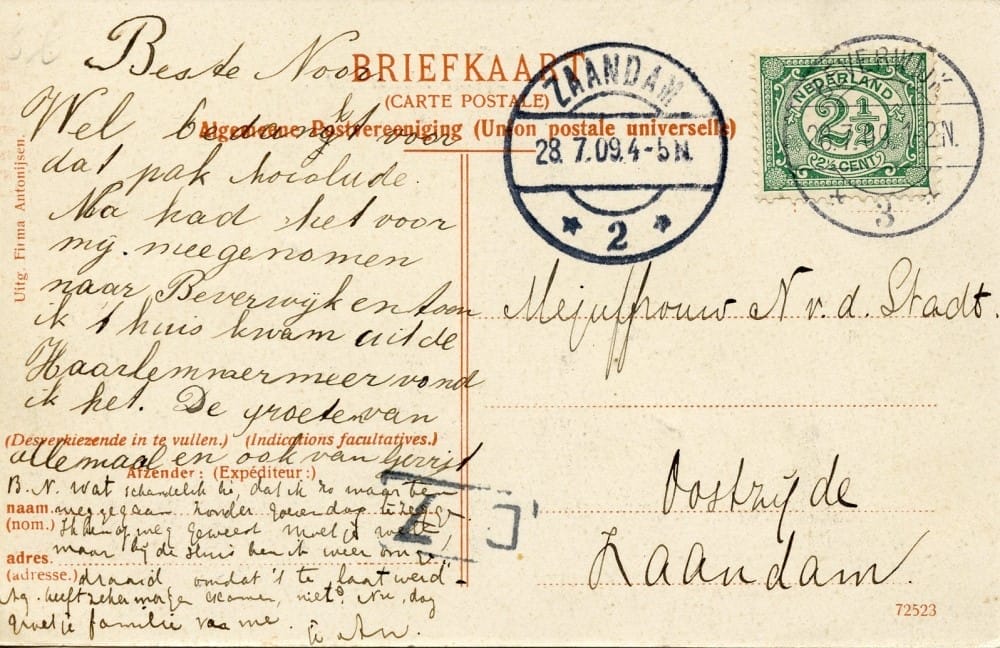 Beste Noor.
Wel bedankt voor
dat pak chocolude.
Ma had het voor
mij meegenomen
naar Beverwijk en toen
ik t'huis kwam uit de
Haarlemmermeer vond
ik het. De groeten van
allemaal en ook van Gerrit
B.N. wat schandelijk hè, dat ik zo maar ben
weggegaan zonder goeien dag te zeggen.
Ik ben op weg geweest moet je weten,
maar bij de sluis ben ik weer omge-
draaid omdat 't te laat werd.
heeft zeker morgen examen, niet? Nu, dag
groet je familie van me.
je An.
BRIEFKAART
(CARTE POSTALE)
Algemeene Postvereeniging (Union postale universelle)
Uitg. Firma Antonijsen.
(Desverkiezende in te vullen.) (Indications facultatives.)
Afzender: (Expéditeur:)
naam.
(nom.)
adres.
(adresse.)
ZAANDAM
28. 7.09. 4-5 N.
2
NEDERLAND
2½
(2½ CENT)
3
Mejuffrouw N v. d. Stadt.
Oostzijde
Zaandam.
72523